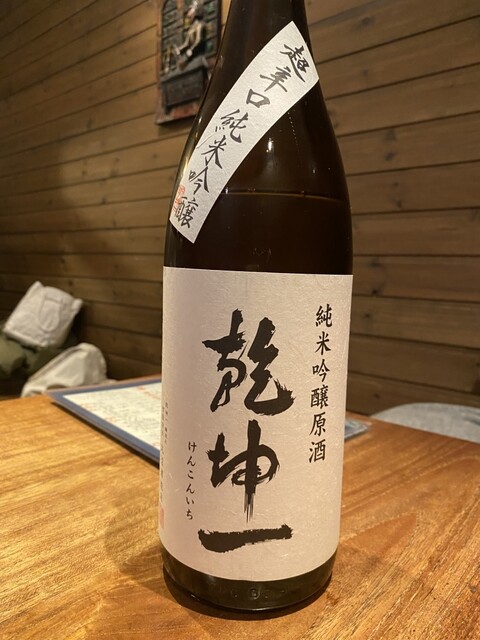 超辛口純米吟醸
純米吟醸原酒
乾坤一
けんこんいち